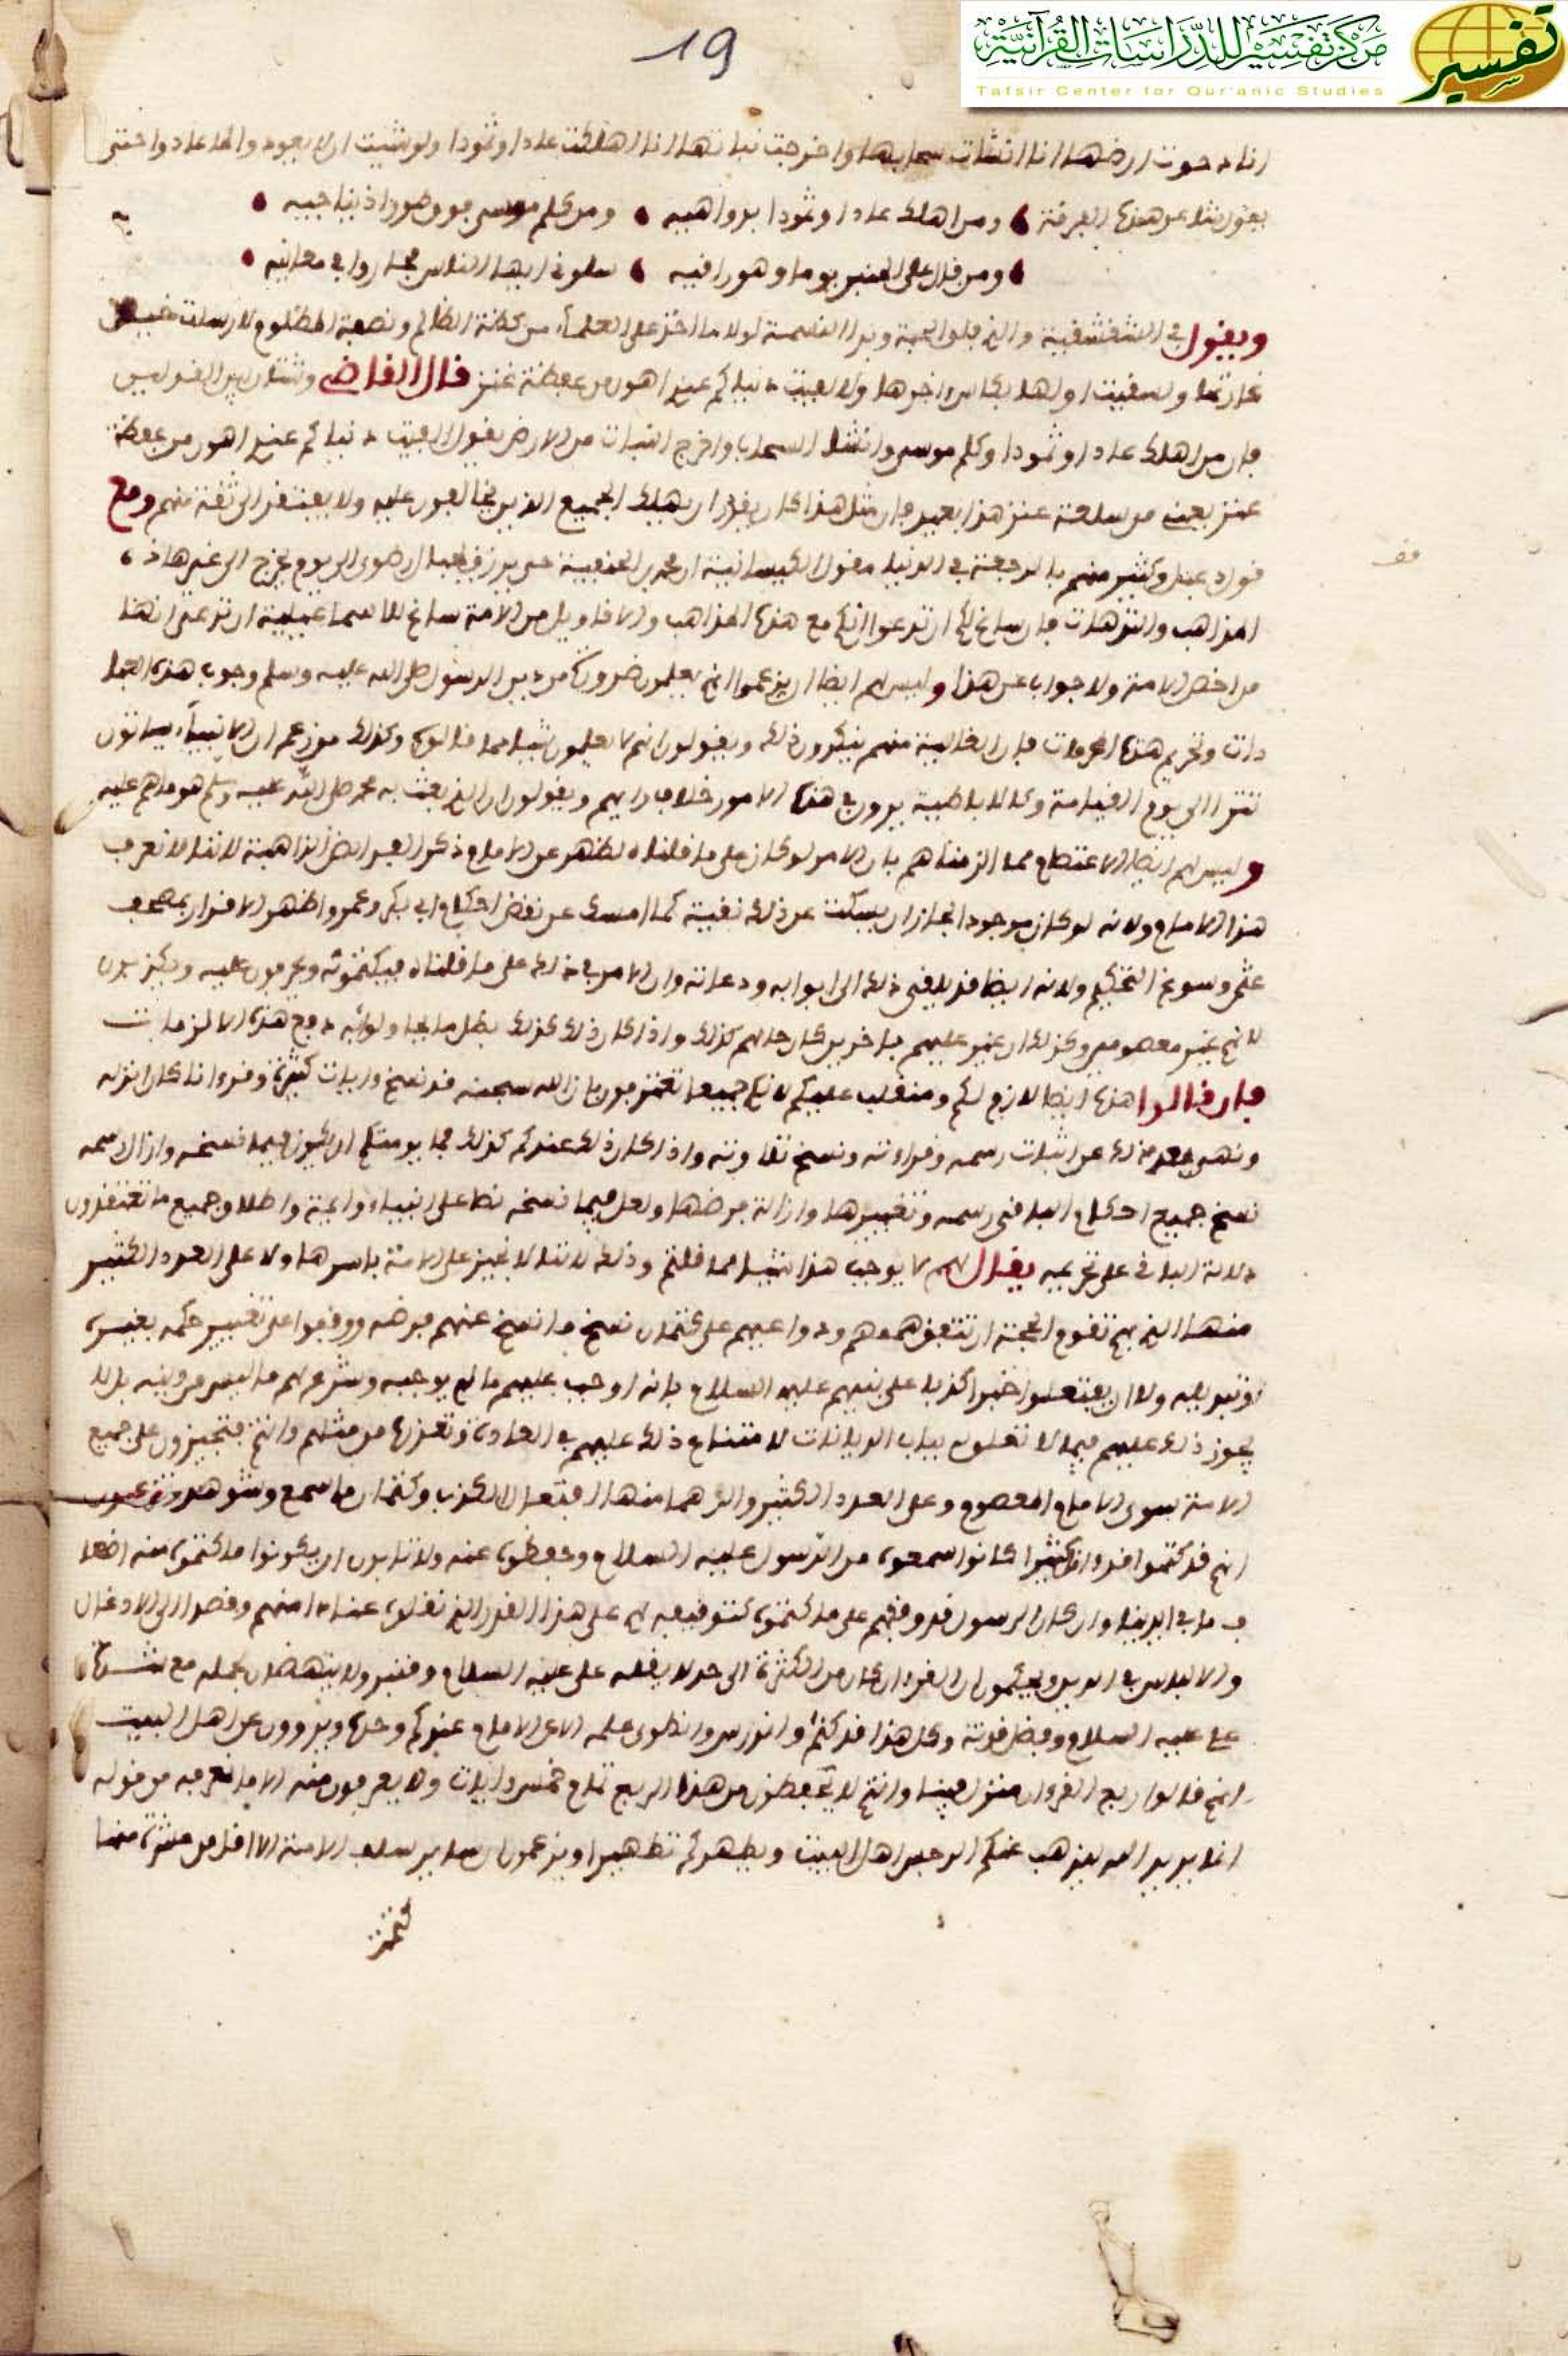 19
مركز تفسير للدراسات القرآنية
تفسير
Tafsir Center for Qur'anic Studies
انا دحوت ارضها انا انشات سحابها واخرجت نباتها انا اهلكت عادا وثمودا ولو شيت ان يعود والها عادوا حتى
يقول شاعر هذه الفرقة ومن اهلك عادا وثمودا بدواهيه ومن كلم موسى فوق طور اذ يناجيه
ومن قال على المنبر يوما وهو راقيه سلوني ايها الناس فحاروا في معانيه
ويقول في الشقشقية والذي فلق الحبة وبرا النسمة لولا ما اخذ على العلماء من كظة الظالم ونصبة المظلوم لارسلت حبلها
غاربها ولسقيت اولها بكاس اخرها ولالفيت دنياكم عندي اهون من عفطة عنز قال القاضي وشتان بين القولين
فان من اهلك عادا وثمودا وكلم موسى وانشا السحاب واخرج النبات من الارض يقول الفيت دنياكم عندي اهون من عفطة
عنز يعني من سلعة عنز هذا بعيد فان مثل هذا كان يقدر ان يهلك الجميع الذين يخالفون عليه ولا يفتقر الى ثقة منهم ومع
قول عبد وكثير منهم بالرجعة في الدنيا وقول الكيسانية ان محمد بن الحنفية حي يرزق بجبال رضوى الى يوم يخرج الى غير هاذه
المذاهب والترهات فان ساغ لكم ان تدعوا انكم مع هذه المذاهب والاقاويل من الامة ساغ للاسماعيلية ان تدعي انها
من اخص الامة ولا جواب عن هذا وليس لهم ايضا ان يزعموا انهم يعلمون ضرورة من دين الرسول صلى الله عليه وسلم وجوب هذه العبا
دات وتحريم هذه المحرمات فان الغالية منهم ينكرون ذلك ويقولون انهم لا يعلمون شيئا مما قالوه وكذلك من زعم ان الانبياء ياتون
تترا الى يوم القيامة وكالباطنية يرون في هذه الامور خلاف رايهم ويقولون ان الذي بعث به محمد صلى الله عليه وسلم هو ما هم عليه
وليس لهم ايضا الاعتصام مما الزمناهم بان الامر لو كان على ما قلناه لظهر عن الامام ذكر الفرايض الذاهبة لاننا لا نعرف
هذا الامام ولانه لو كان موجودا لجاز ان يسكت عن ذلك تقية كما امسك عن نقض احكام ابي بكر وعمر واظهر الاقرار بمصحف
عثمن وسوغ التحكيم ولانه ايضا قد يلقي ذلك الى ابوابه ودعاته وان الامر في ذلك على ما قلناه فيكتمونه ويحرفون عليه ويكذبون
لانهم غير معصومين وكذلك ان غير عليهم باخرين كان حالهم كذلك واذا كان ذلك كذلك بطل ما يحاولونه دفع هذه الالزامات
فان قالوا هذا ايضا لازم لكم ومنقلب عليكم لانكم جميعا تعترفون بان الله سبحنه قد نسخ وايات كثيرة وقرءانا كان انزله
ونهى بعد ذلك عن اثبات رسمه وقراءته ونسخ تلاوته واذا كان ذلك عندكم كذلك فما يومنكم ان يكون فيما نسخه وازال رسمه
نسخ جميع احكام الباقي رسمه وتغييرها وازالة فرضها ولعل فيما نسخه نصا على انبياء وايمة واطلاق جميع ما تعتقدون
دلالة الباقي على تحريمه يقال لهم لا يوجب هذا شيئا مما قلتم وذلك لاننا لا نجيز على الامة باسرها ولا على العدد الكثير
منها الذين بهم تقوم الحجة ان تتفق هممهم ودواعيهم على كتمان نسخ ما نسخ عنهم فرضه ووقفوا على تغيير حكمه بغيره
وتبديله ولا ان يفتعلوا خبرا كذبا على نبيهم عليه السلام بانه اوجب عليهم ما لم يوجبه وشرع لهم ما ليس من دينه بل لا
يجوز ذلك عليهم فيما لا تعلق له بباب الديانات لامتناع ذلك عليهم في العادة وتعذره من مثلهم وانتم فتجيزون على جميع
الامة سوى الامام المعصوم وعلى العدد الكثير والدهما منها افتعال الكذب وكتمان ما سمع وشوهد وتزعمون
انهم قد كتموا قرءانا كثيرا كانوا سمعوه من الرسول عليه السلام وحفظوه عنه ولا تابون ان يكونوا ما كتموه منه اضعا
ف ما في ايدينا وان كان الرسول قد وقفهم على ما كتموه كتوقيفه لهم على هذا القدر الذي نقلوه عنادا منهم وقصدا الى الادغال
والالباس في الدين ويحكمون ان القرءان كان من الكثرة الى حد لا يقله على عليه السلام وقنبر ولا ينهضان بحمله مع شدة
على عليه السلام وفضل قوته وكل هذا قد كتم وانذرس وانطوى علمه الا عن الامام عندكم وحده ويروون عن اهل البيت
انهم قالوا ربع القرءان منزل فينا وانتم لا تحفظون من هذا الربع تمام خمس ايات ولا يعرفون منه الا ما نعرفه من قوله
انما يريد الله ليذهب عنكم الرجس اهل البيت ويطهركم تطهيرا ويزعمون ان ساير سلف الامة الا اقل من عشرة منها
كتمت